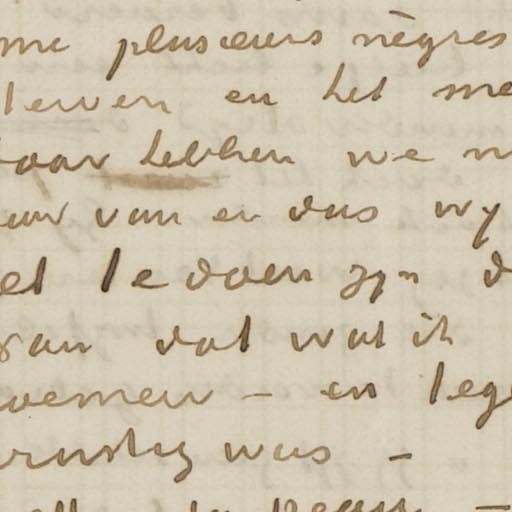 me plusieurs nègres
terven en het me
daar hebben we n
uw van er dus wy
et te doen zyn d
van dat wat ik
noemen – en tege
ernstig was –